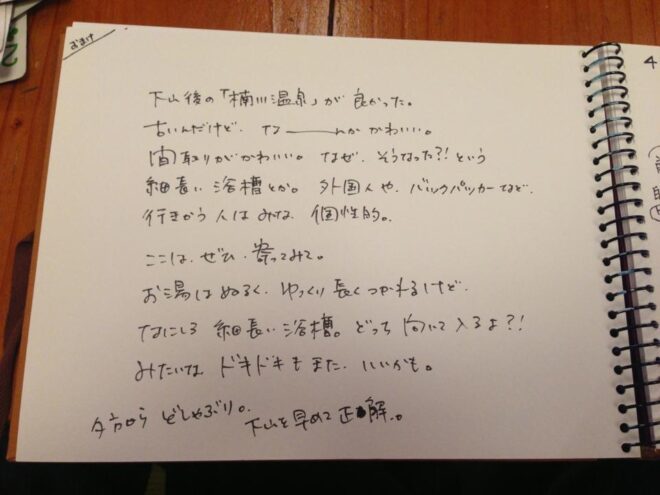 おまけ
下山後の「楠川温泉」が良かった。
古いんだけど、な――んか かわいい。
間取りがかわいい。なぜ、そうなった?!という
細長い浴槽とか。外国人や、バックパッカーなど、
行きかう人はみな、個性的。
ここは、ぜひ、寄ってみて。
お湯はぬるく、ゆっくり長くつかれるけど、
なにしろ 細長い浴槽。どっち向いて入るよ?!
みたいな ドキドキもまた、いいかも。
夕方から どしゃぶり。
下山を早めて正解。
4